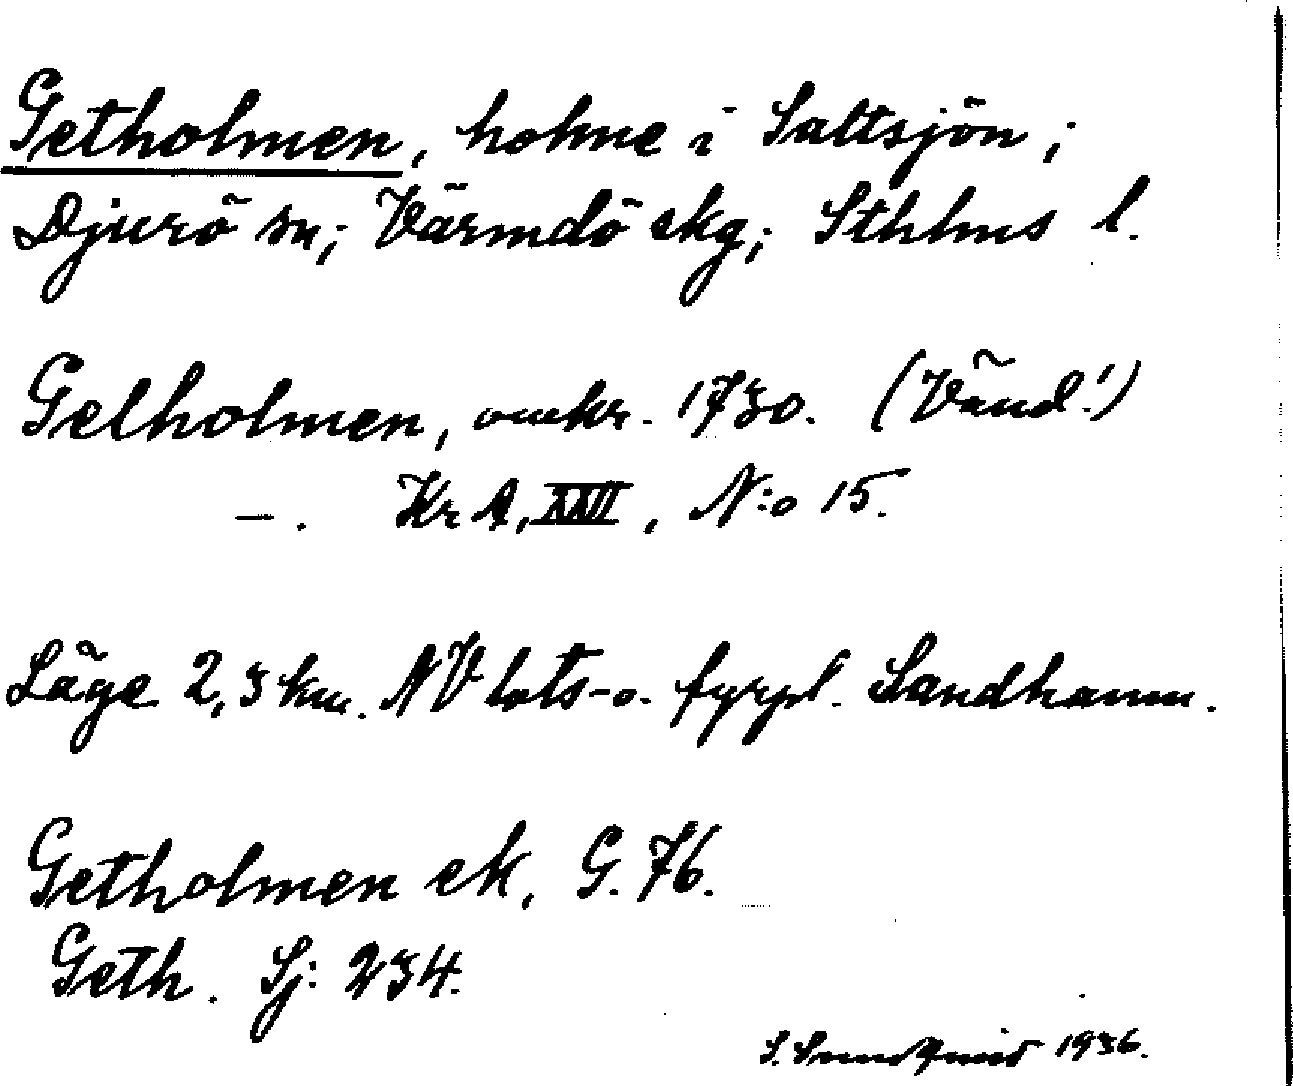 Getholmen, holme i Saltsjön;
Djurö sn; Värmdö skg; Sthlms l.
Gelholmen, omkr. 1730. (Vänd!)
—. Kr A, XXII, N:o 15.
Läge 2,3 km. NV lots- o. fyrpl. Sandhamn.
Getholmen ek, G. 76.
Geth. Sj: 234.
S. Sundqvist 1936.